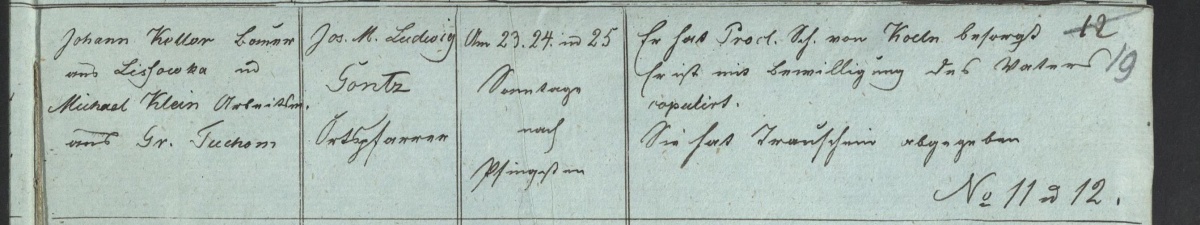 Johann Kollar Bauer
aus Lissowka u
Michael Klein Arbeitsm.
aus Gr. Tuchom
Jos. M. Ludwig
Gontz
Ortspfarrer
Am 23. 24. u 25
Sonntage
nach
Pfingsten
Er hat Procl. Sch. von Koeln besorgt
Er ist mit Bewilligung des Vaters
copulirt.
Sie hat Trauschein abgegeben
No 11 u 12.
12
19